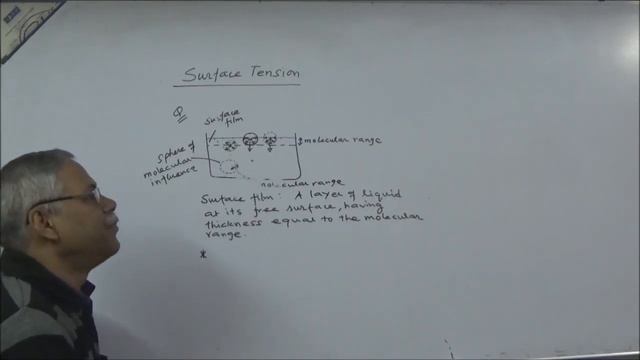 Surface Tension
Q
surface
film
molecular range
sphere of
molecular
influence
molecular range
Surface film : A layer of liquid
at its free surface, having
thickness equal to the molecular
range.
*